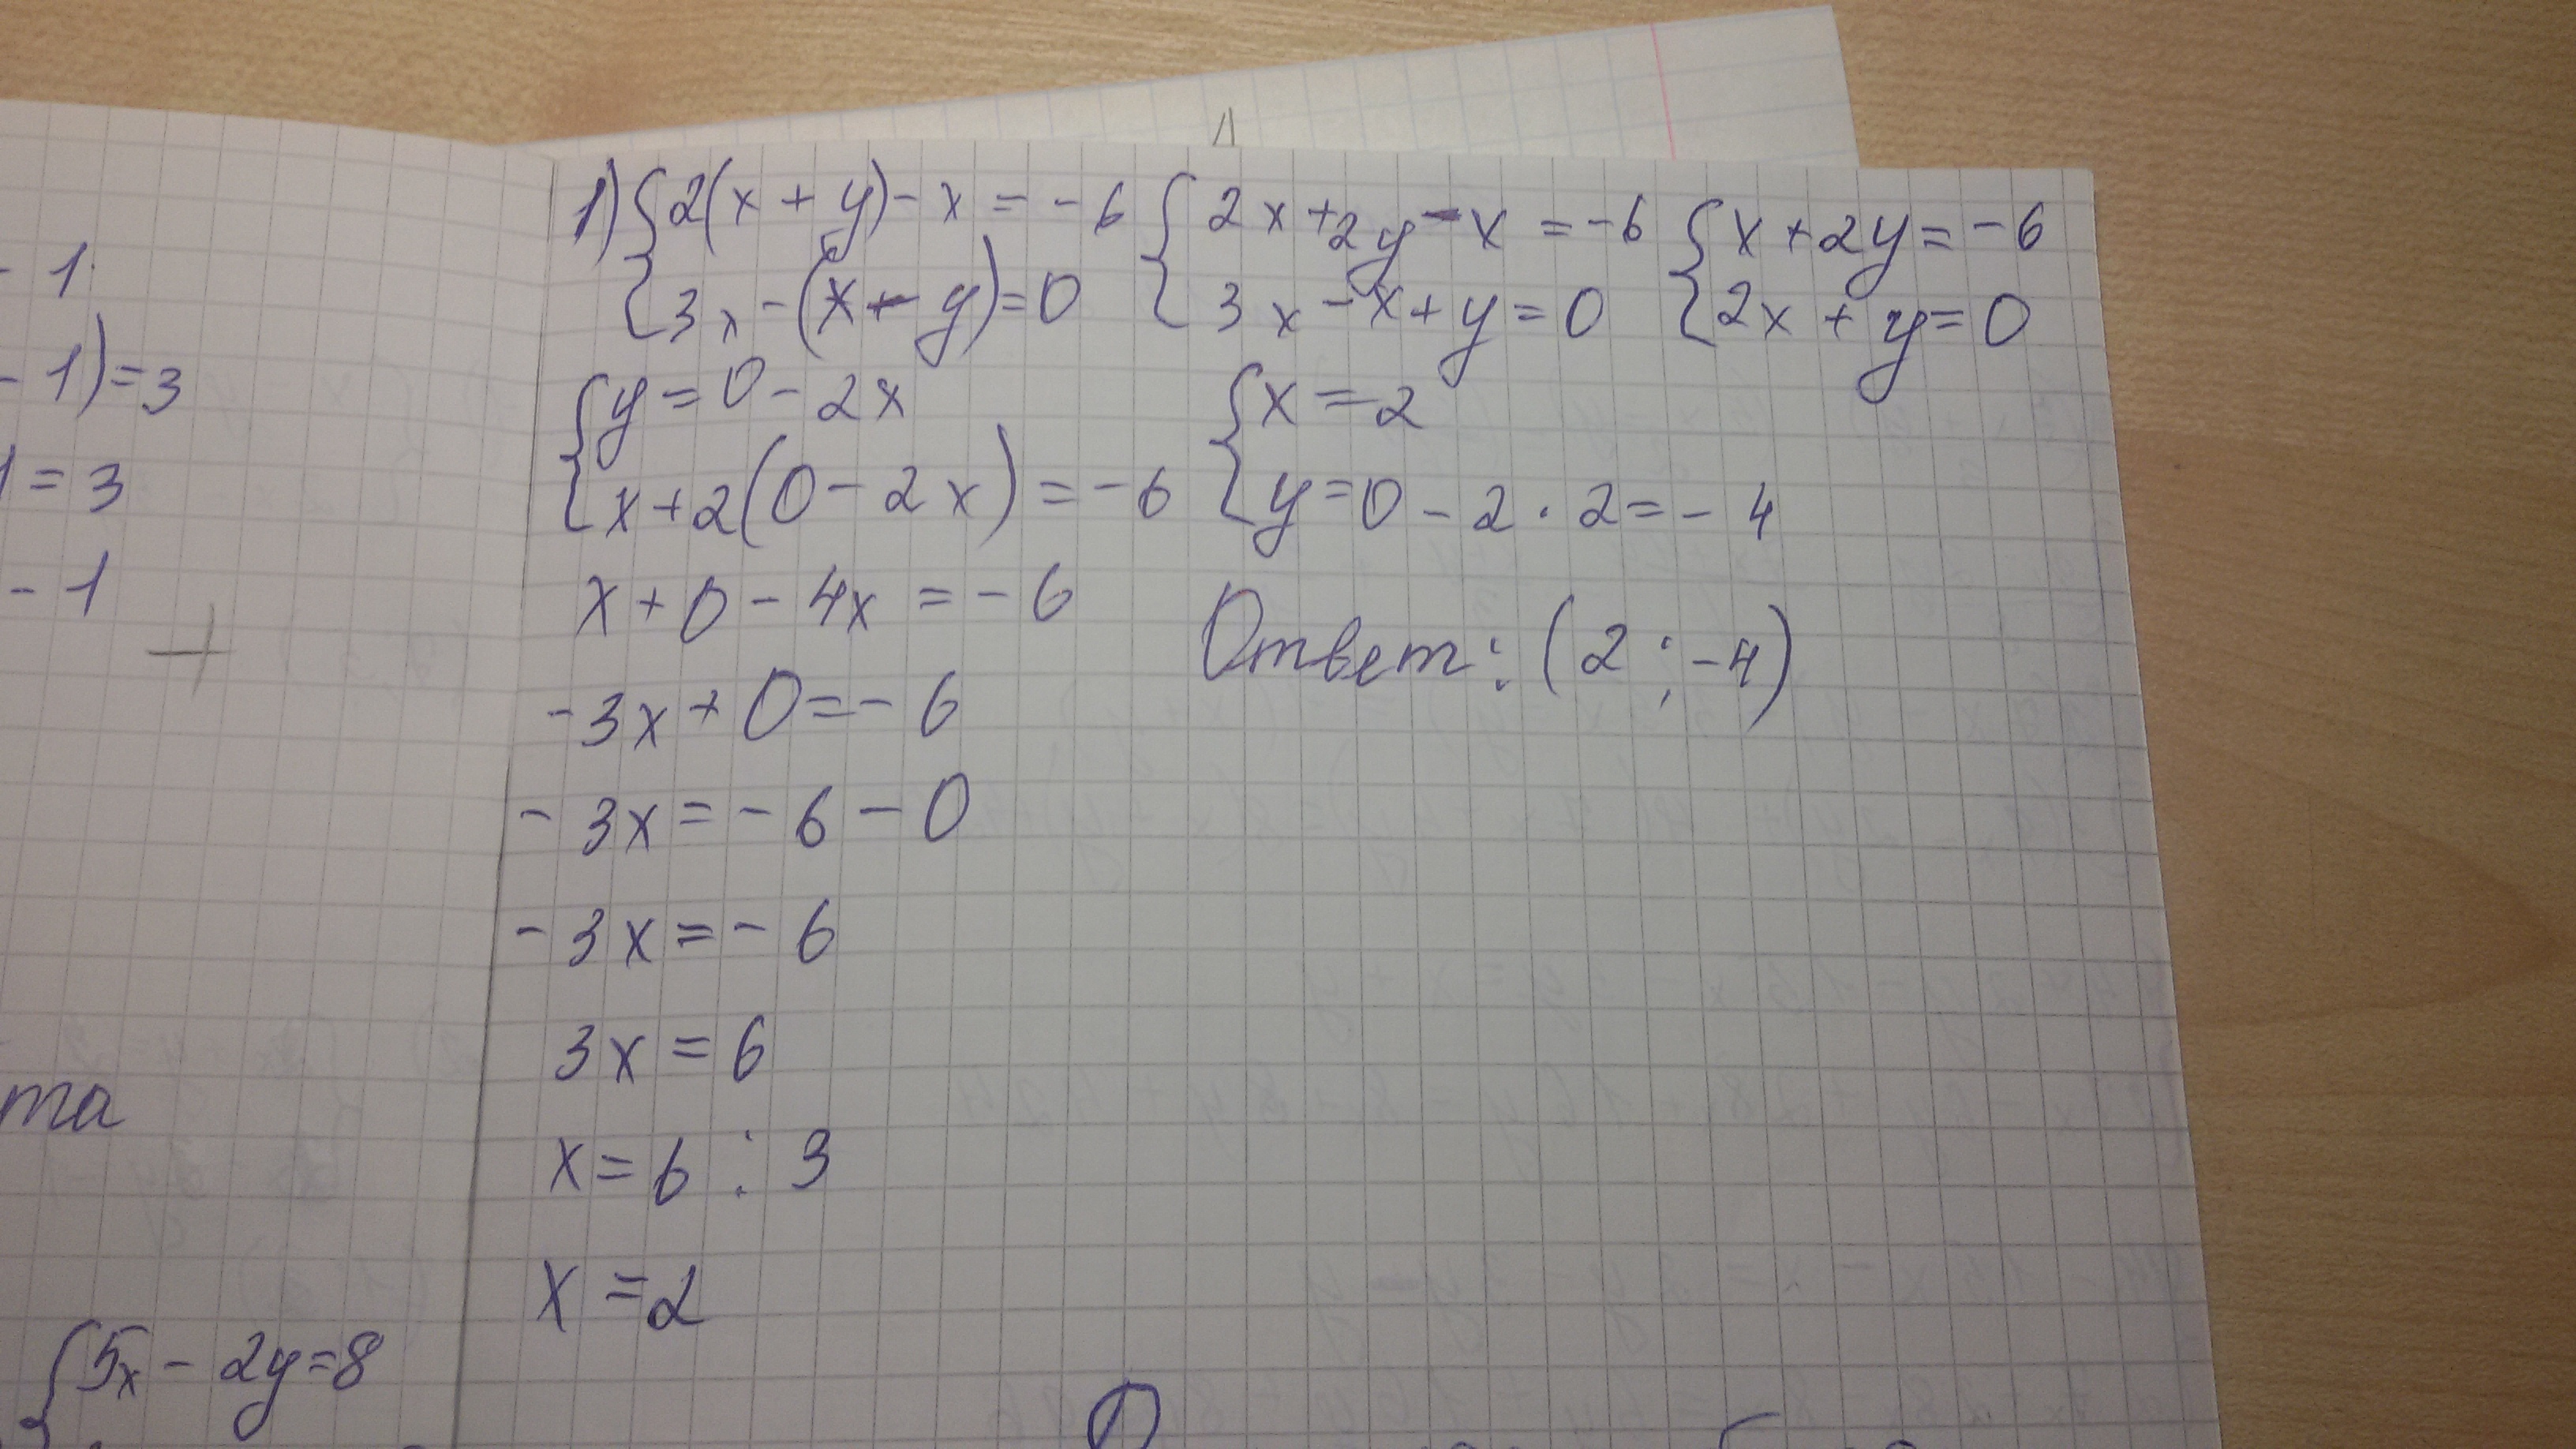 - 1
- 1) = 3
1 = 3
- 1
+
та
{ 5x - 2y = 8
1) { 2(x + y) - x = - 6 { 2x + 2y - x = - 6 { x + 2y = - 6
{ 3x - (x - y) = 0 { 3x - x + y = 0 { 2x + y = 0
{ y = 0 - 2x { x = 2
{ x + 2(0 - 2x) = - 6 { y = 0 - 2 · 2 = - 4
x + 0 - 4x = - 6
Ответ: (2 ; -4)
- 3x + 0 = - 6
- 3x = - 6 - 0
- 3x = - 6
3x = 6
x = 6 : 3
x = 2